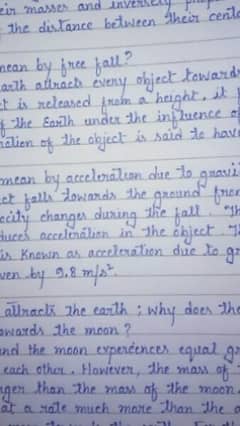 masses and inversely
the distance between their
mean by free fall?
attracts every object towards
is released from a height, it
the Earth under the influence
the object is said to have
mean by acceleration due to
falls towards the ground from
changes during the fall.
acceleration in the object.
is known as acceleration due to
by 9.8 m/s².
attracts the earth ; why does
the moon ?
and the moon experiences equal
each other. However, the mass of
than the mass of the moon.
at a rate much more than the